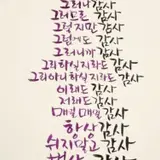 그러나감사
그러므로감사
그렇지만감사
그럼에도감사
그러니까감사
그리하실지라도감사
그리아니하실지라도감사
이래도감사
저래도감사
매일매일감사
항상감사
쉬지말고감사
범사감사